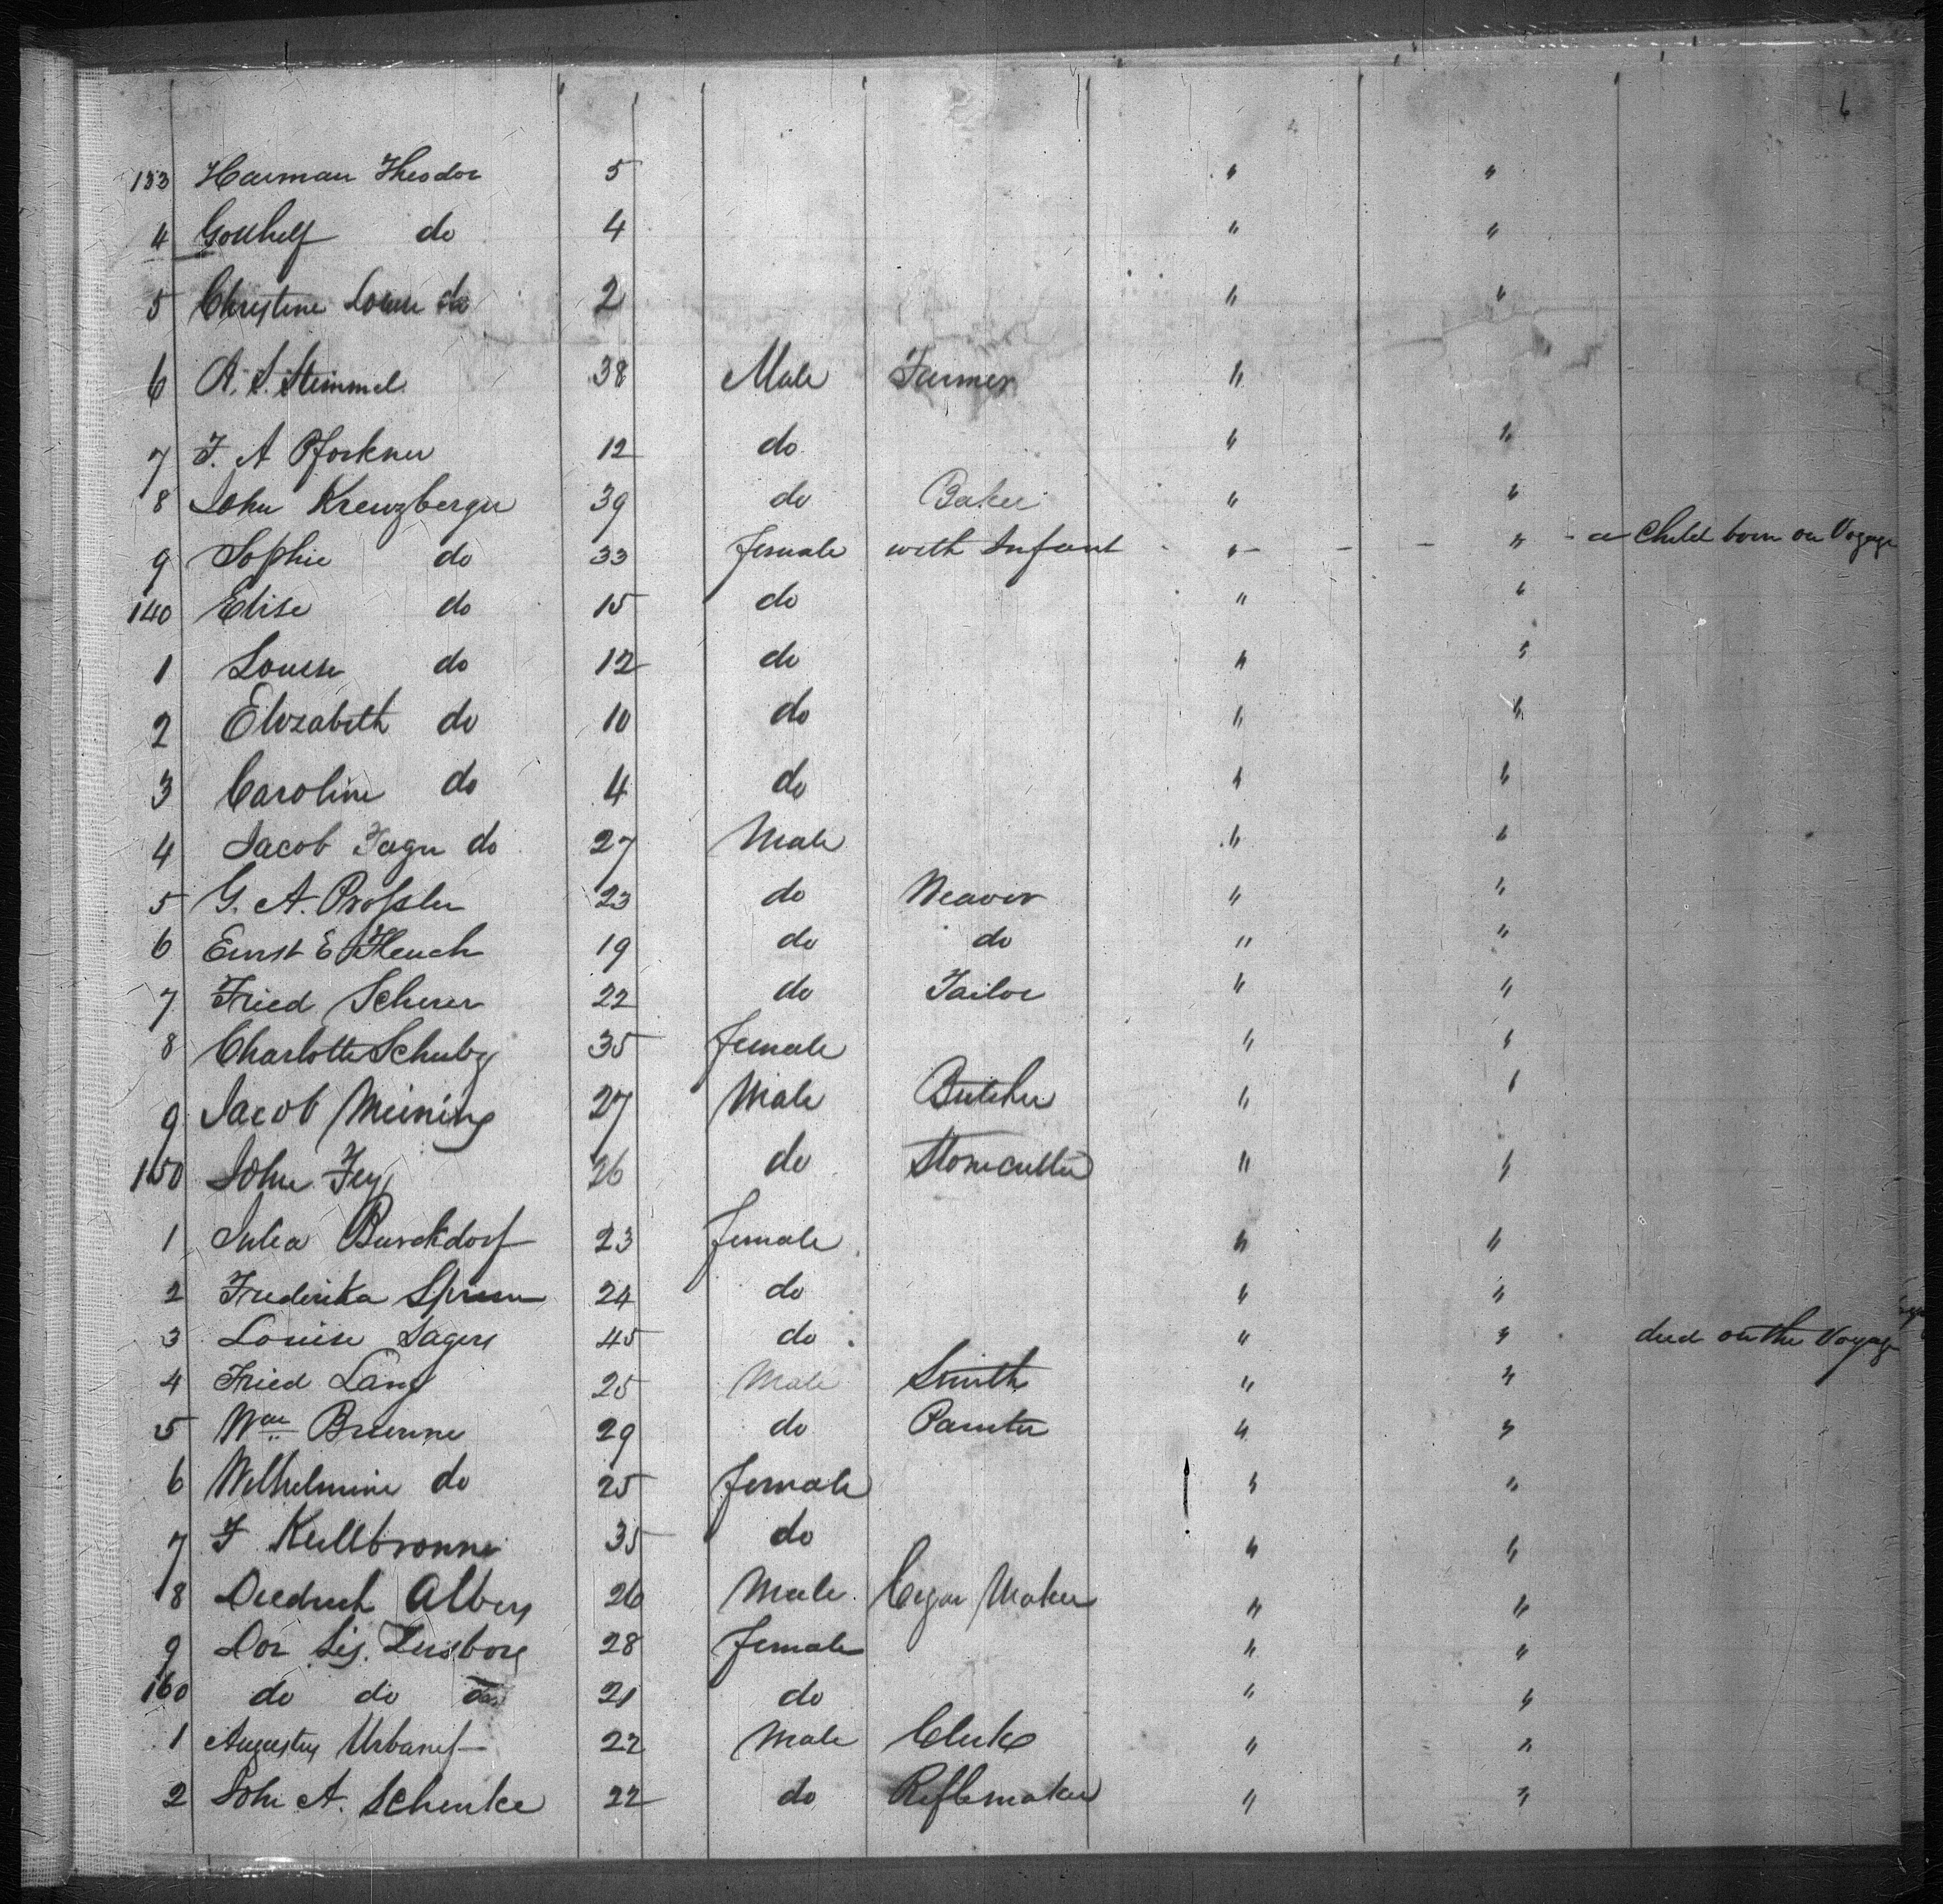 6
133 Harman Theodor 5 " "
4 Gotthelf do 4 " "
5 Christine Louise do 2 " "
6 A. S. Stemmel 38 Male Farmer " "
7 F. A Pforkner 12 do " "
8 John Kreuzberger 39 do Baker " "
9 Sophie do 33 female with Infant " " a Child born on Voyage
140 Elise do 15 do " "
1 Louise do 12 do " "
2 Elizabeth do 10 do " "
3 Caroline do 4 do " "
4 Jacob do 27 Male " "
5 G. A. Prossler 23 do Weaver " "
6 Ernst E 19 do do " "
7 Fried Scherer 22 do Tailor " "
8 Charlotte Schulz 35 female " "
9 Jacob Meining 27 Male Butcher " "
150 John Fey 26 do Stonecutter " "
1 Julia Burckdorf 23 female " "
2 Frederika 24 do " "
3 Louise Jagers 45 do " " died on the Voyage
4 Fried Lang 25 Male Smith " "
5 Wm Brunne 29 do Painter " "
6 Wilhelmine do 25 female " "
7 F Kellbronne 35 do " "
8 Diedrich Albers 26 Male Cigar Maker " "
9 Dor Lis. 28 female " "
160 do do do 21 do " "
1 Augustus 22 Male Clerk " "
2 John A. Schenke 22 do Riflemaker " "